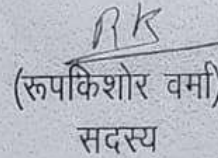 RK
(रूपकिशोर वर्मा)
सदस्य